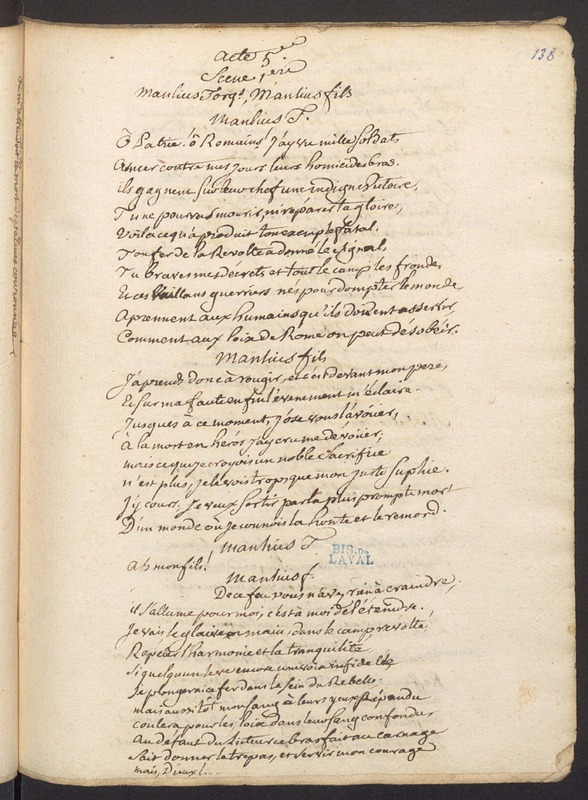 138
acte 5e
Scene 1ere
Manlius Torq., Manlius fils
Manlius T.
Ô Patrie! ô Romains! j'ay vu mille soldats
Armer contre mes jours leurs homicides bras.
ils gagnent sur leur chef une indigne victoire,
Tu ne pourras mourir, ni réparer ta gloire,
Voila ce qu'a produit ton exemple fatal.
Ton fer de la Revolte a donné le signal,
Tu braves mes decrets et tout le camp les fronde,
Et ces vaillans guerriers nés pour dompter le monde
Aprennent aux humains qu'ils doivent asservir,
Comment aux loix de Rome on peut désobéir.
Manlius fils
J'aprends donc à rougir, et c'est devant mon pere,
Et sur ma faute enfin l'évenement m'éclaire.
Jusques à ce moment, j'ose vous l'avouer,
à la mort en heros j'ay cru me dévouer,
mais ce que je croyois un noble sacrifice
n'est plus, je le vois trop, que mon juste suplice.
J'y cours. Je veux sortir par la plus prompte mort
D'un monde où je connois la honte et le remord.
Manlius T
Ah mon fils!
BIB. DE
LAVAL
Manlius f.
De ce feu vous n'avez rien à craindre;
il s'allume pour moi, c'est à moi de l'éteindre.
Je vais le glaive en main, dans le camp revolté
Repeler l'harmonie et la tranquilité
Si quelqu'un leve encore une voix infidelle
Je plongerai ce fer dans le sein du Rebelle.
mais aussitôt mon sang à leurs yeux répandu
coulera pour les loix dans leur sang confondu,
au défaut du Licteur ce bras fait au carnage
Sait donner le trepas, et servir mon courage
mais, Dieux!...